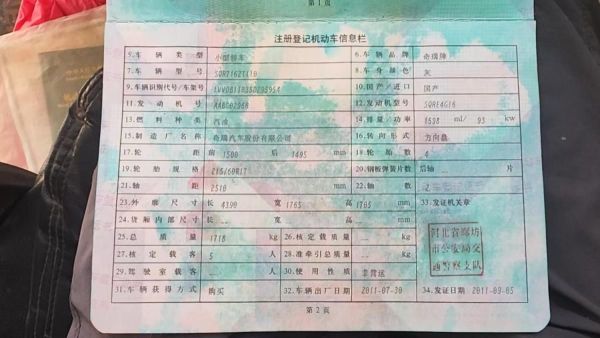 第1页
注册登记机动车信息栏
5.车辆类型 小型轿车 6.车辆品牌 奇瑞牌
7.车辆型号 8.车身颜色 灰
9.车辆识别代号/车架号 10.国产/进口 国产
11.发动机号 12.发动机型号 SQRE4G16
13.燃料种类 汽油 14.排量/功率 1598 ml/ 93 kw
15.制造厂名称 奇瑞汽车股份有限公司 16.转向形式 方向盘
17.轮距 前 1500 后 1495 mm 18.轮胎数 4
19.轮胎规格 215/60R17 20.钢板弹簧片数 后轴 -- 片
21.轴距 2510 mm 22.轴数 2
23.外廓尺寸 长 4390 宽 1765 高 1705 mm 33.发证机关章
24.货厢内部尺寸 长 -- 宽 -- 高 -- mm
25.总质量 1718 kg 26.核定载质量 -- kg
27.核定载客 5 人 28.准牵引总质量 -- kg
29.驾驶室载客 -- 人 30.使用性质 非营运
河北省廊坊
市公安局交
通警察支队
31.车辆获得方式 购买 32.车辆出厂日期 2011-07-30 34.发证日期 2011-09-05
第2页